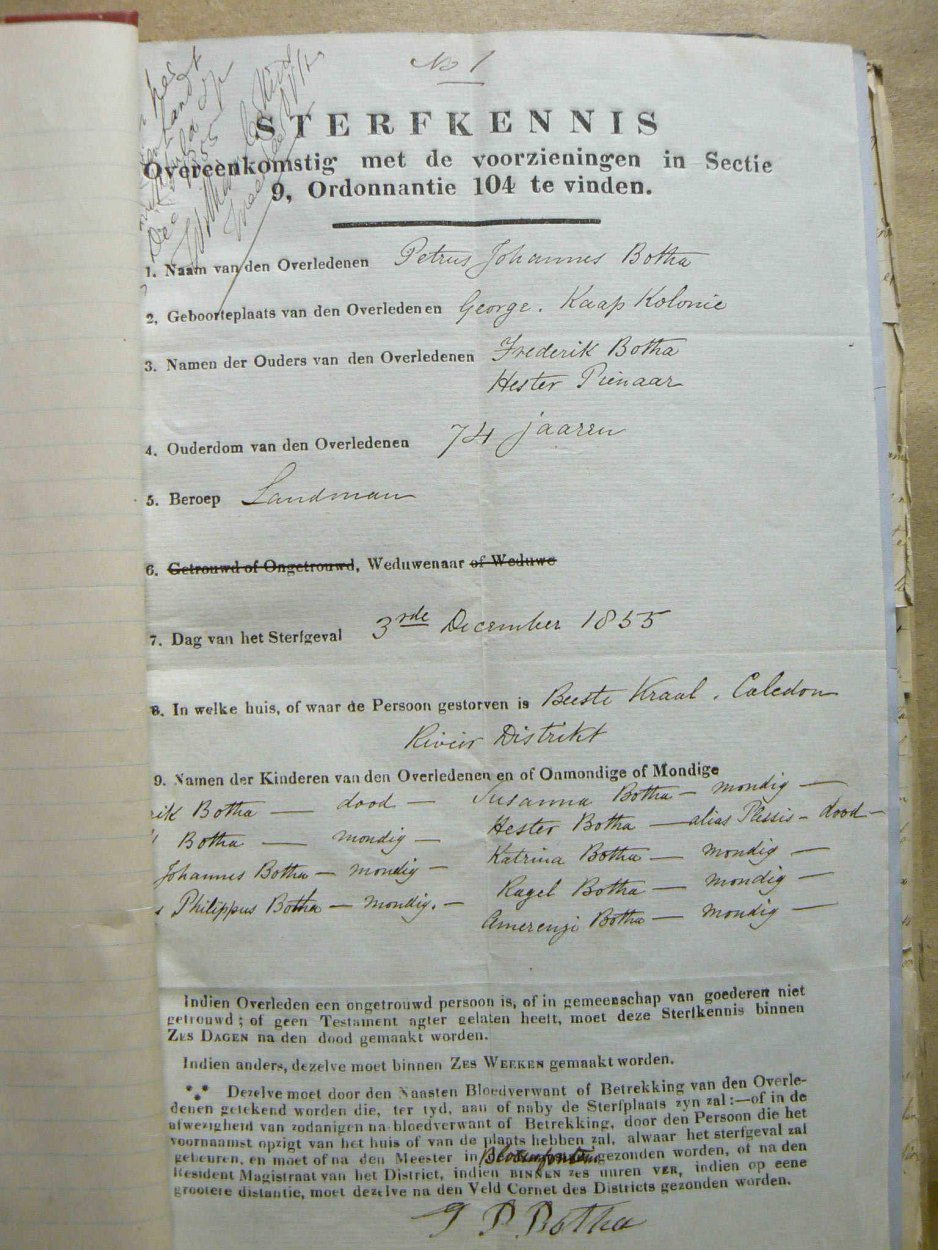 No 1
STERFKENNIS
Overeenkomstig met de voorzieningen in Sectie
9, Ordonnantie 104 te vinden.
1. Naam van den Overledenen Petrus Johannes Botha
2, Geboorteplaats van den Overledenen George. Kaap Kolonie
3. Namen der Ouders van den Overledenen Frederik Botha
Hester Pienaar
4. Ouderdom van den Overledenen 74 jaaren
5. Beroep Landman
6. Getrouwd of Ongetrouwd, Weduwenaar of Weduwe
7. Dag van het Sterfgeval 3rde December 1855
8. In welke huis, of waar de Persoon gestorven is Beeste Kraal. Caledon
Rivier Distrikt
9. Namen der Kinderen van den Overledenen en of Onmondige of Mondige
rik Botha — dood — Susanna Botha — mondig —
Botha — mondig — Hester Botha — alias Plessis — dood —
Johannes Botha — mondig — Katrina Botha — mondig —
s Philippus Botha — mondig. — Ragel Botha — mondig —
Botha — mondig —
Indien Overleden een ongetrouwd persoon is, of in gemeenschap van goederen niet
getrouwd; of geen Testament agter gelaten heeft, moet deze Sterfkennis binnen
ZES DAGEN na den dood gemaakt worden.
Indien anders, dezelve moet binnen ZES WEEKEN gemaakt worden.
Dezelve moet door den Naasten Bloedverwant of Betrekking van den Overle-
denen getekend worden die, ter tyd, aan of naby de Sterfplaats zyn zal:—of in de
afwezigheid van zodanigen na-bloedverwant of Betrekking, door den Persoon die het
voornaamst opzigt van het huis of van de plaats hebben zal, alwaar het sterfgeval zal
gebeuren, en moet of na den Meester in Bloemfontein gezonden worden, of na den
Resident Magistraat van het District, indien BINNEN ZES uuren VER, indien op eene
grootere distantie, moet dezelve na den Veld Cornet des Districts gezonden worden.
Botha